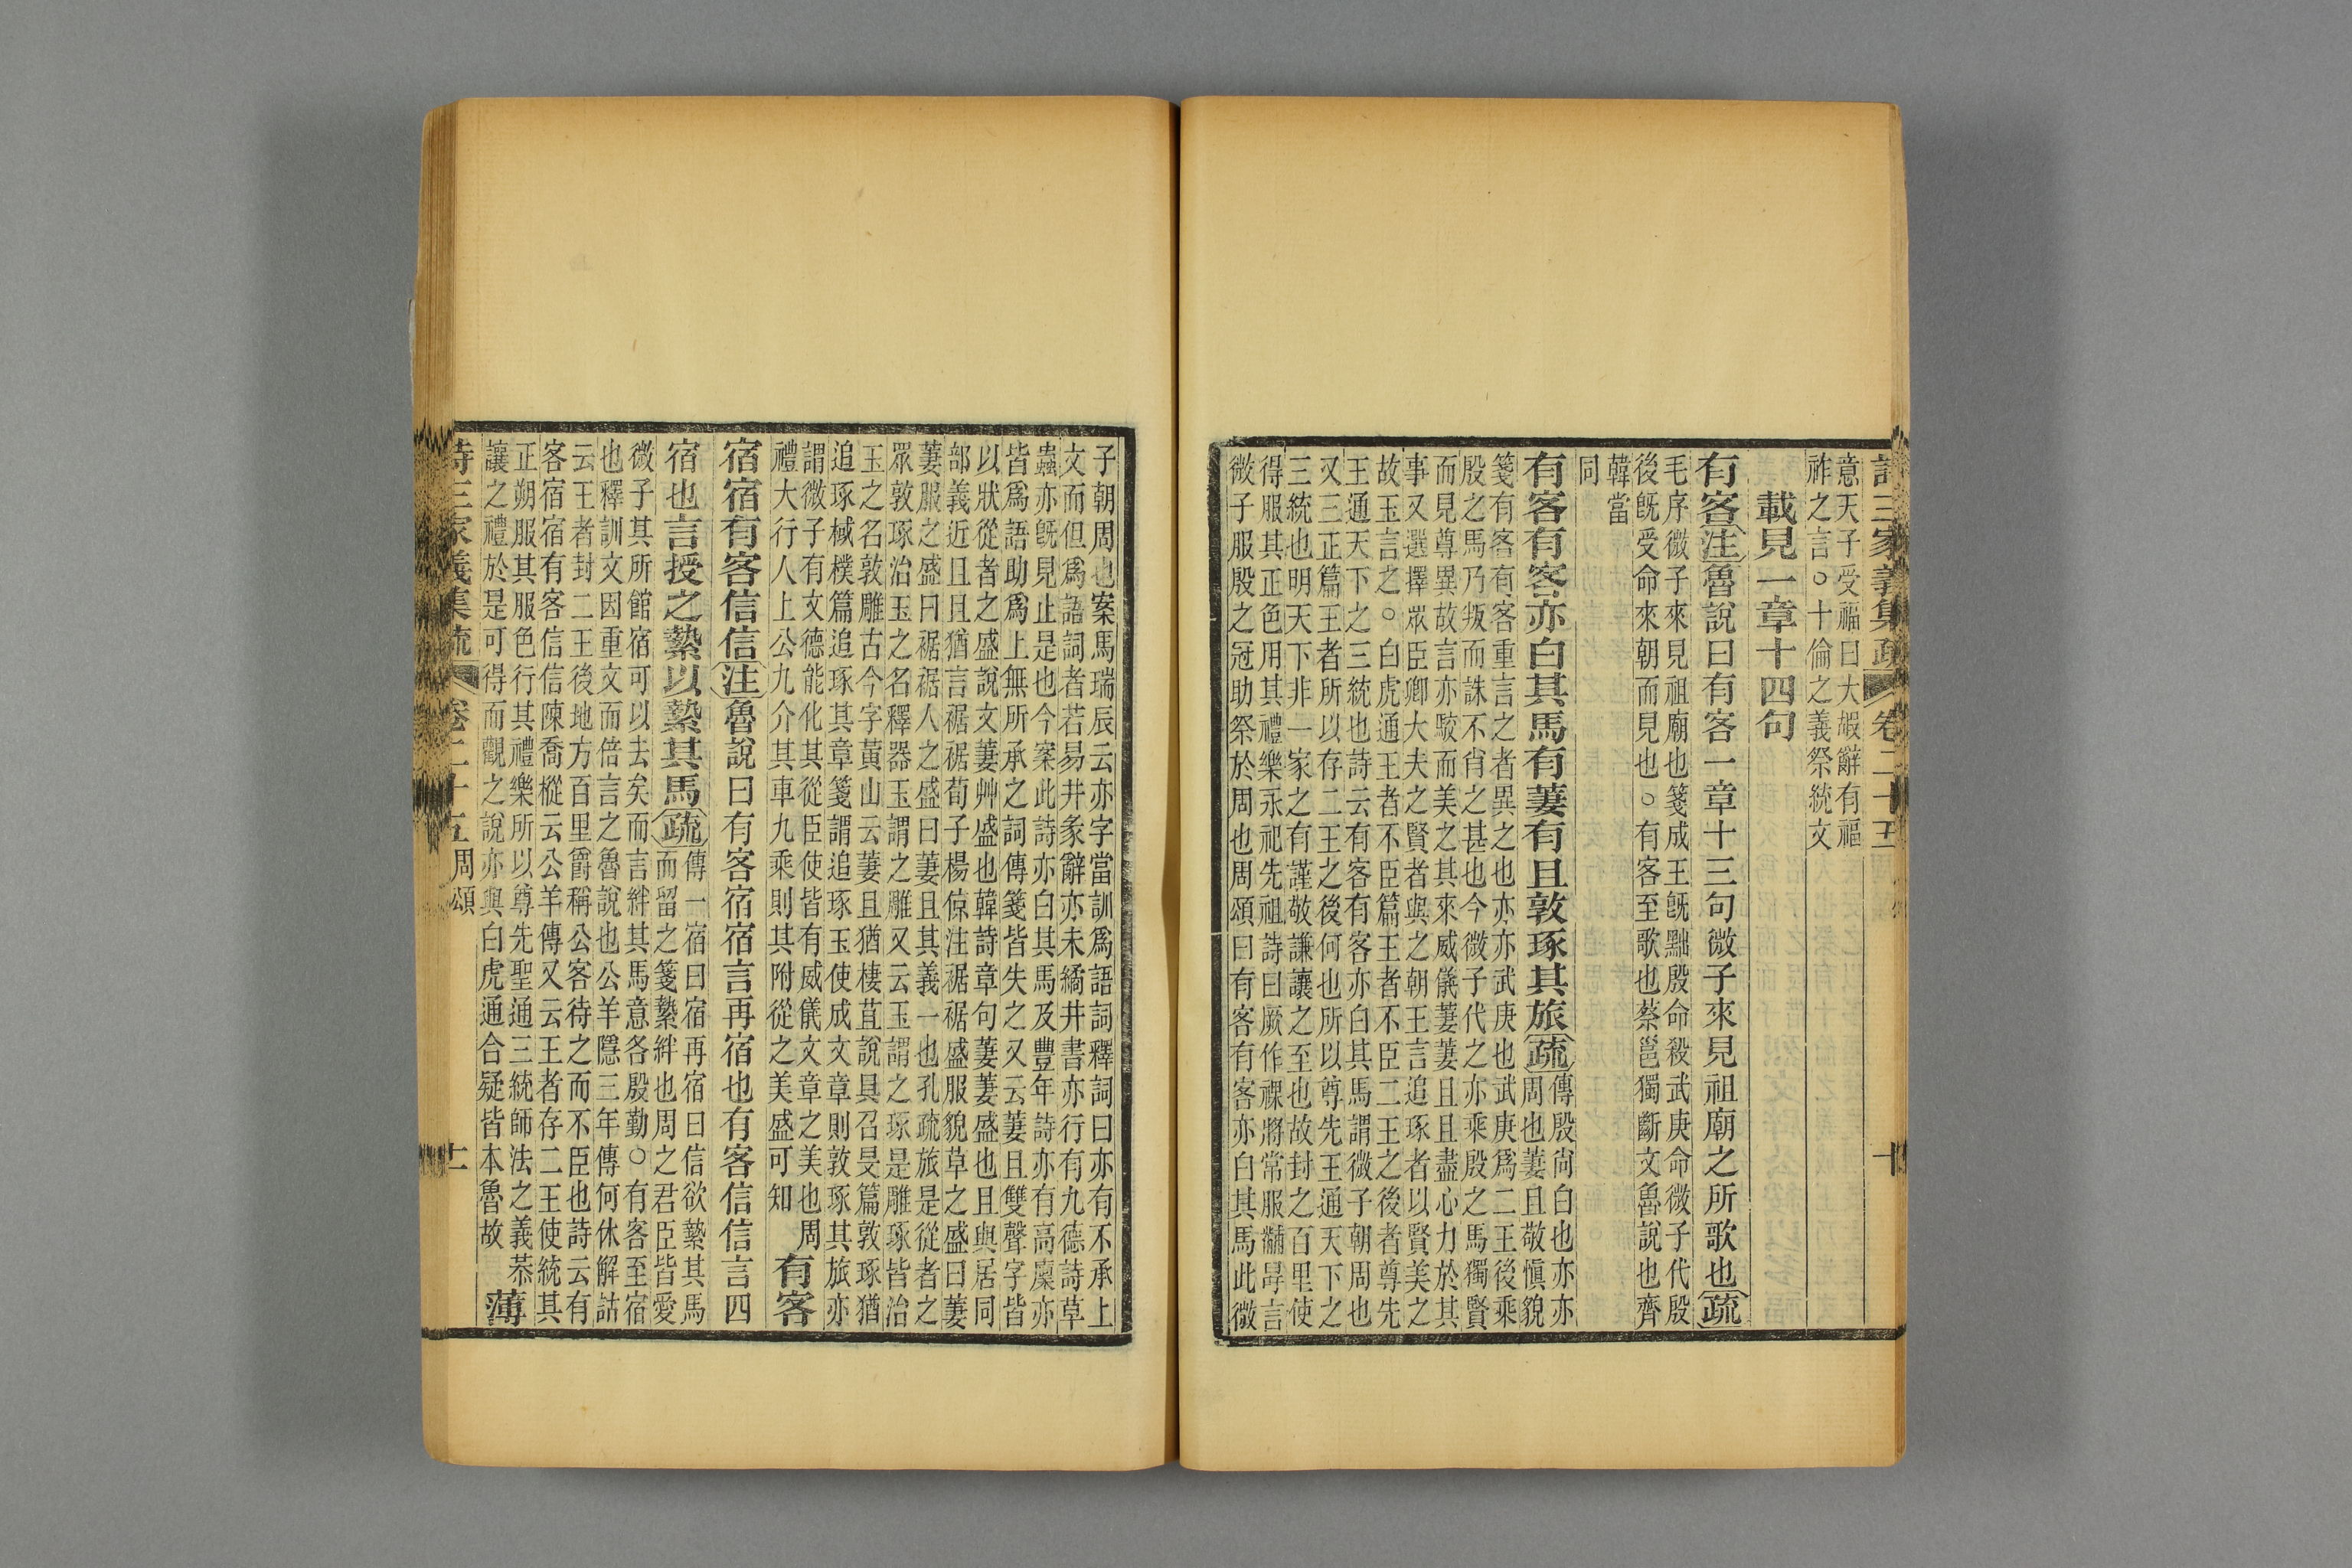 詩三家義集疏 卷二十五 十
意天子受福曰大嘏辭有福
祚之言○十倫之義祭統文
載見一章十四句
有客注魯說曰有客一章十三句微子來見祖廟之所歌也疏
毛序微子來見祖廟也箋成王旣黜殷命殺武庚命微子代殷
後旣受命來朝而見也○有客至歌也蔡邕獨斷文魯說也齊
韓當
同
有客有客亦白其馬有萋有且敦琢其旅疏
傳殷尙白也亦亦
周也萋且敬愼貌
箋有客有客重言之者異之也亦亦武庚也武庚爲二王後乘
殷之馬乃叛而誅不肖之甚也今微子代之亦乘殷之馬獨賢
而見尊異故言亦駮而美之其來威儀萋萋且且盡心力於其
事又選擇眾臣卿大夫之賢者與之朝王言追琢者以賢美之
故玉言之○白虎通王者不臣篇王者不臣二王之後者尊先
王通天下之三統也詩云有客有客亦白其馬謂微子朝周也
又三正篇王者所以存二王之後何也所以尊先王通天下之
三統也明天下非一家之有謹敬謙讓之至也故封之百里使
得服其正色用其禮樂永祀先祖詩曰厥作祼將常服黼冔言
微子服殷之冠助祭於周也周頌曰有客有客亦白其馬此微
子朝周也案馬瑞辰云亦字當訓爲語詞釋詞曰亦有不承上
文而但爲語詞者若易井彖辭亦未繘井書亦行有九德詩草
蟲亦旣見止是也今案此詩亦白其馬及豐年詩亦有高廩亦
皆爲語助爲上無所承之詞傳箋皆失之又云萋且雙聲字皆
以狀從者之盛說文萋艸盛也韓詩章句萋萋盛也且與居同
部義近且且猶言裾裾荀子楊倞注裾裾盛服貌草之盛曰萋
萋服之盛曰裾裾人之盛曰萋且其義一也孔疏旅是從者之
眾敦琢治玉之名釋器玉謂之雕又云玉謂之琢是雕琢皆治
玉之名敦雕古今字黃山云萋且猶棲苴說具召旻篇敦琢猶
追琢棫樸篇追琢其章箋謂追琢玉使成文章則敦琢其旅亦
謂微子有文德能化其從臣使皆有威儀文章之美也周
禮大行人上公九介其車九乘則其附從之美盛可知
有客
宿宿有客信信注魯說曰有客宿宿言再宿也有客信信言四
宿也言授之縶以縶其馬疏
傳一宿曰宿再宿曰信欲縶其馬
而留之箋縶絆也周之君臣皆愛
微子其所館宿可以去矣而言絆其馬意各殷勤○有客至宿
也釋訓文因重文而倍言之魯說也公羊隱三年傳何休解詁
云王者封二王後地方百里爵稱公客待之而不臣也詩云有
客宿宿有客信信陳喬樅云公羊傳又云王者存二王使統其
正朔服其服色行其禮樂所以尊先聖通三統師法之義恭
讓之禮於是可得而觀之說亦與白虎通合疑皆本魯故
薄
詩三家義集疏 卷二十五 周頌 十一